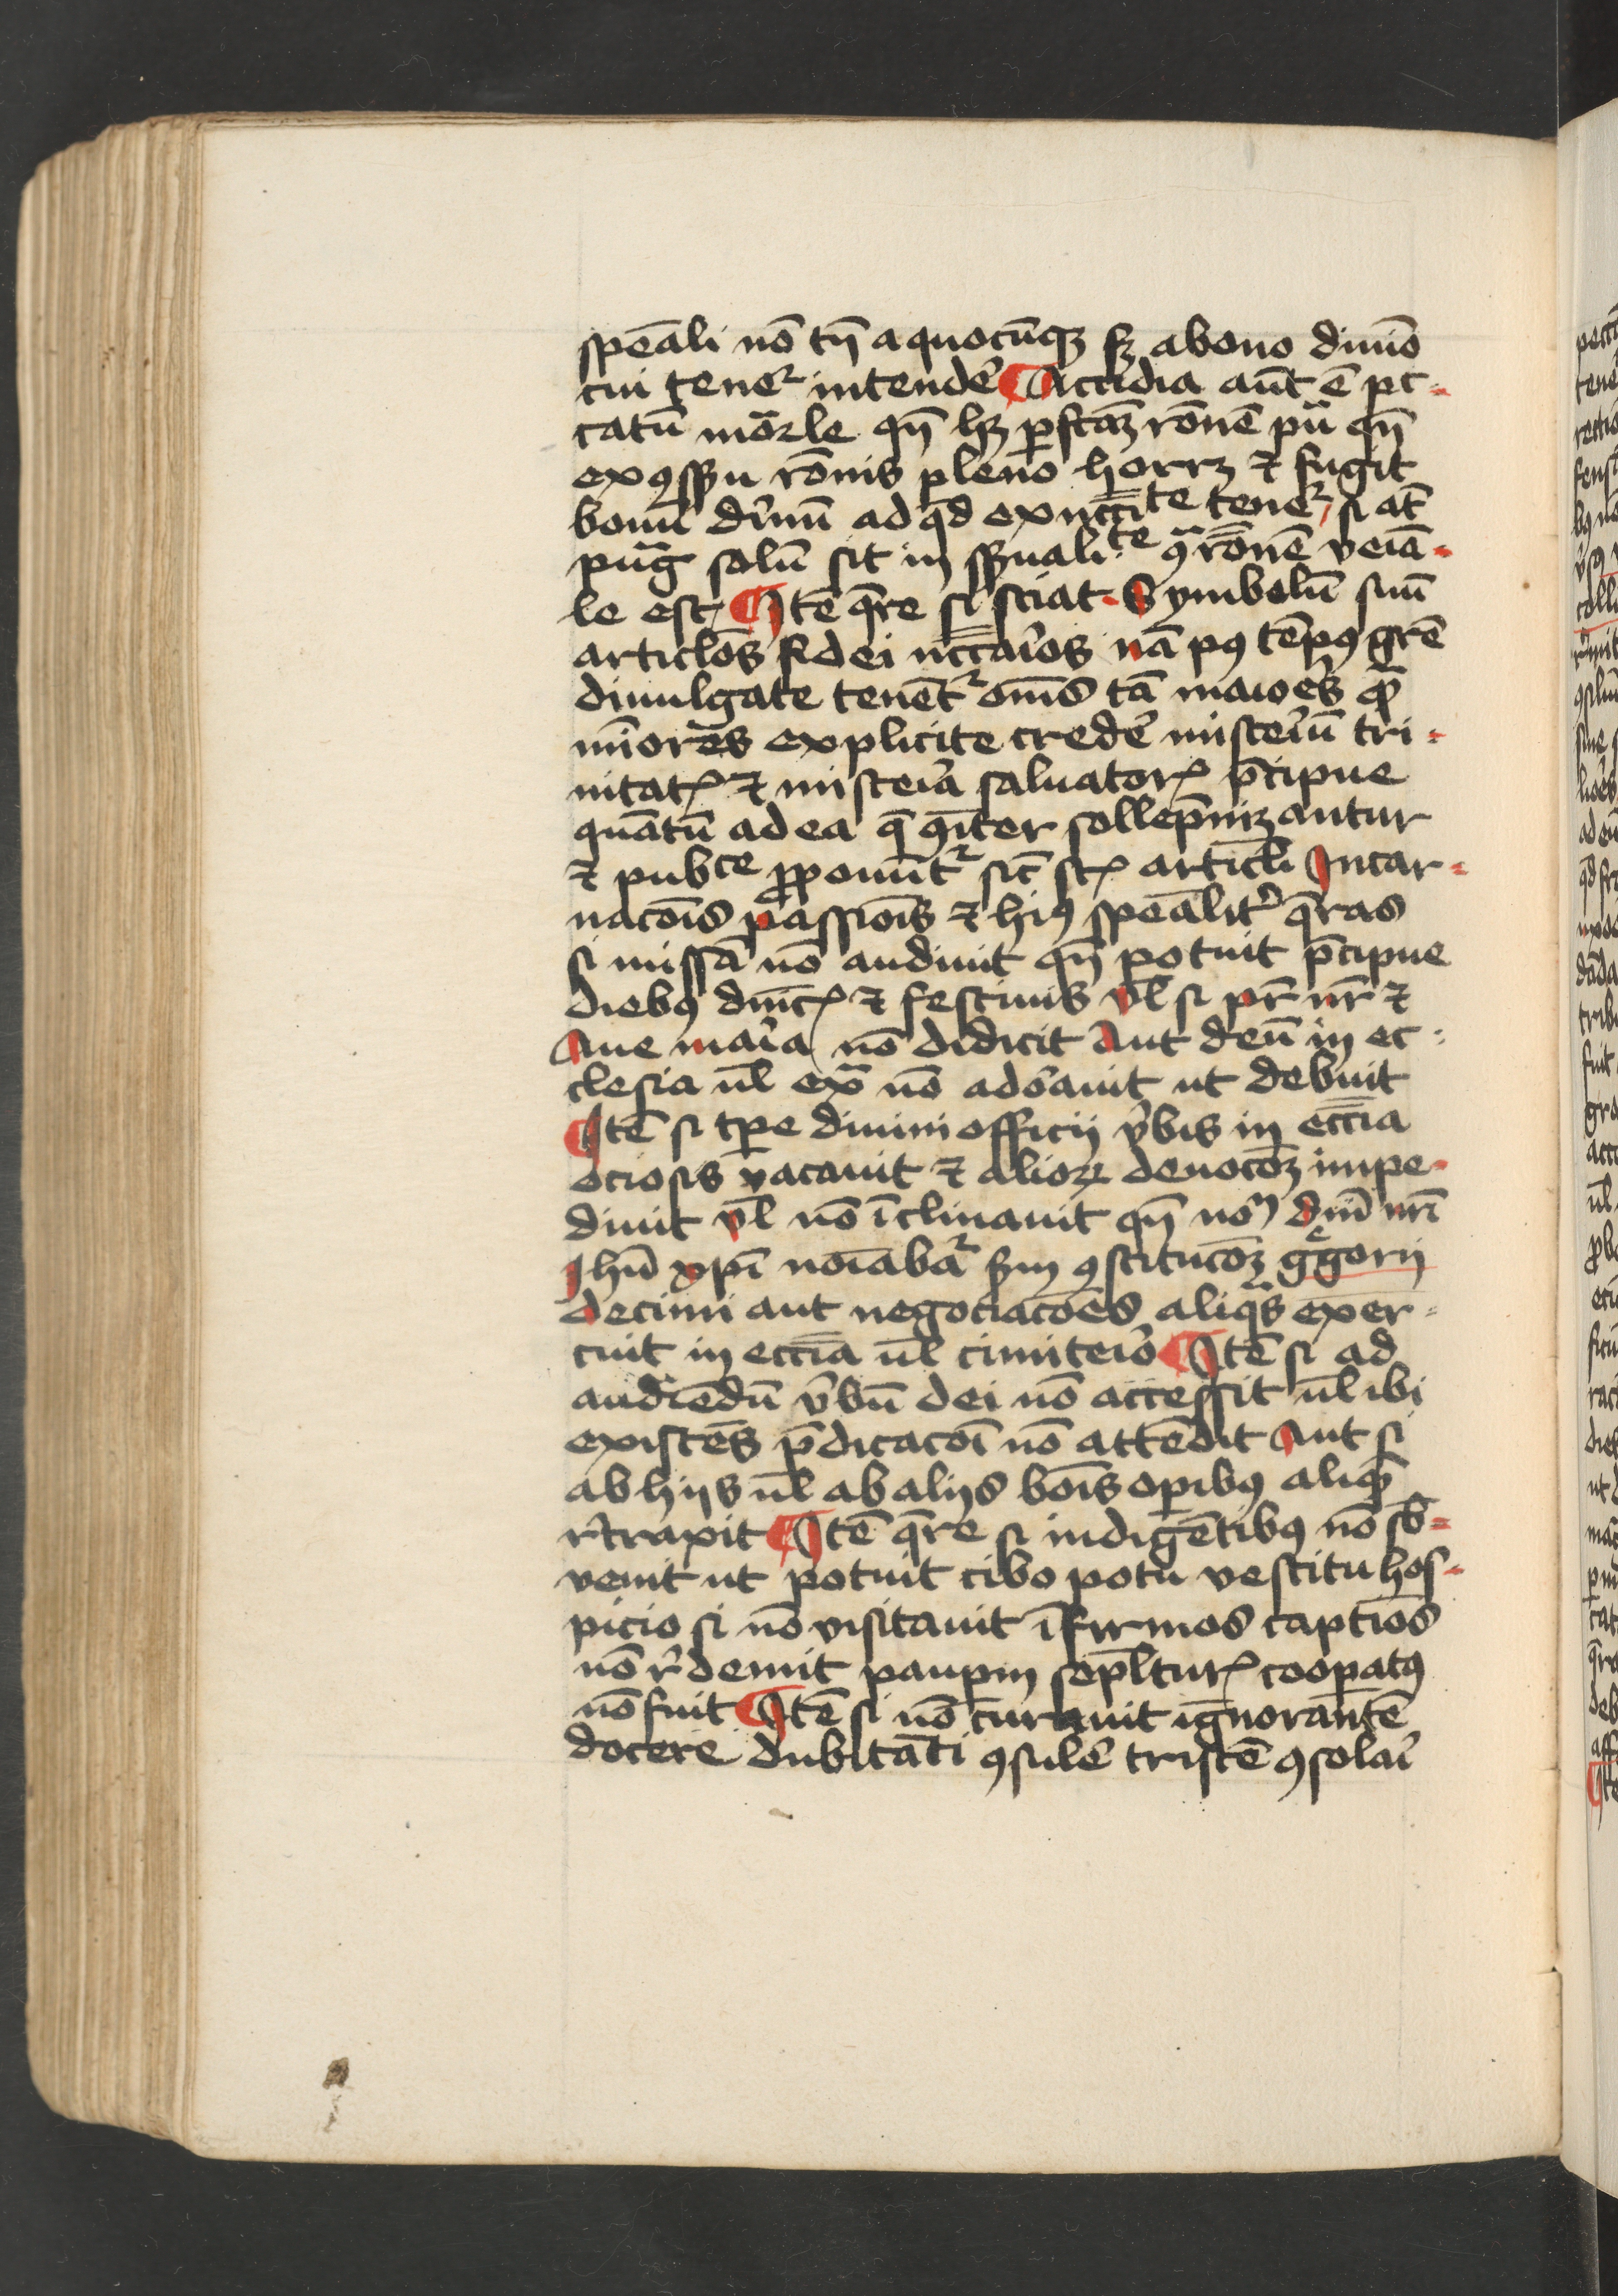 speāli nō tn̄ a quocūqꝫ sꝫ a bono diuīo
cui teneꝛ intendē ¶ Accidia aūt ē pc-
catū mōrle qn̄ hꝫ ꝑfcāꝫ rōnē pͣ qn̄
ex ꝯsēsu rōnis pleno horrꝫ ⁊ fugit
bonū diuinū ad qd̄ ex nccīte teneꝛ si aūt
pugͣ solū sit in sensualite ꝯͣ rōnē veia-
le est ¶ Itē qre si sciat Symbolū siuē
articlōs fidei nccāios nā pꝰ tēpꝰ grē
diuulgate tenētꝛ om̄s tā maioes qͣ
miōres explicite credē misteiū tri-
nitatꝭ ⁊ misteia saluatorꝭ p̄cipue
quātū ad ea q̄ ꝯiter sollēpnizantur
⁊ pubce ꝓponūtꝛ sic̄ stꝭ articl̄i Incar-
nacōis passiōis ⁊ hiꝰ speālit̾ q̄ras
si missā nō audiuit qn̄ potuit p̄cipue
diebꝰ dn̄icꝭ ⁊ festiuis vl̄ si pr̄ nr̄ ⁊
Aue maīa nō didicit Aut deū in ec-
clesia ul̄ exͣ nō adōauit ut debuit
¶ Itē si tꝑe diuini officij v̾bis in ecc̄ia
ociosis vacauit ⁊ alioꝝ deuocōꝫ impe-
diuit vl̄ nō īclinauit qn̄ nō dn̄i nr̄i
Jhū xpī noīabāꝛ scdm ꝯstitucōꝫ ggorij
decimi aut negociacōes aliqͣs exer-
cuit in ecc̄ia ul̄ cimiteīo ¶ Itē si ad
audiēdū v̾bū dei nō accessit ul̄ ibi
existēs p̄dicacōi nō attēdit Aut si
ab hijs ul̄ ab alijs bōis oꝑibꝰ aliqͣ
r̾traxit ¶ Itē qre si indigētibꝰ nō sb̄-
venit ut potuit cibo potu vestitu hos-
picio si nō visitauit īfirmos captiōs
nō r̾demit pauꝑm sepl̄turꝭ cooꝑatꝰ
nō fuit ¶ Itē si nō curauit ignorantē
docere dubitāti ꝯsulē tristē ꝯsolaī